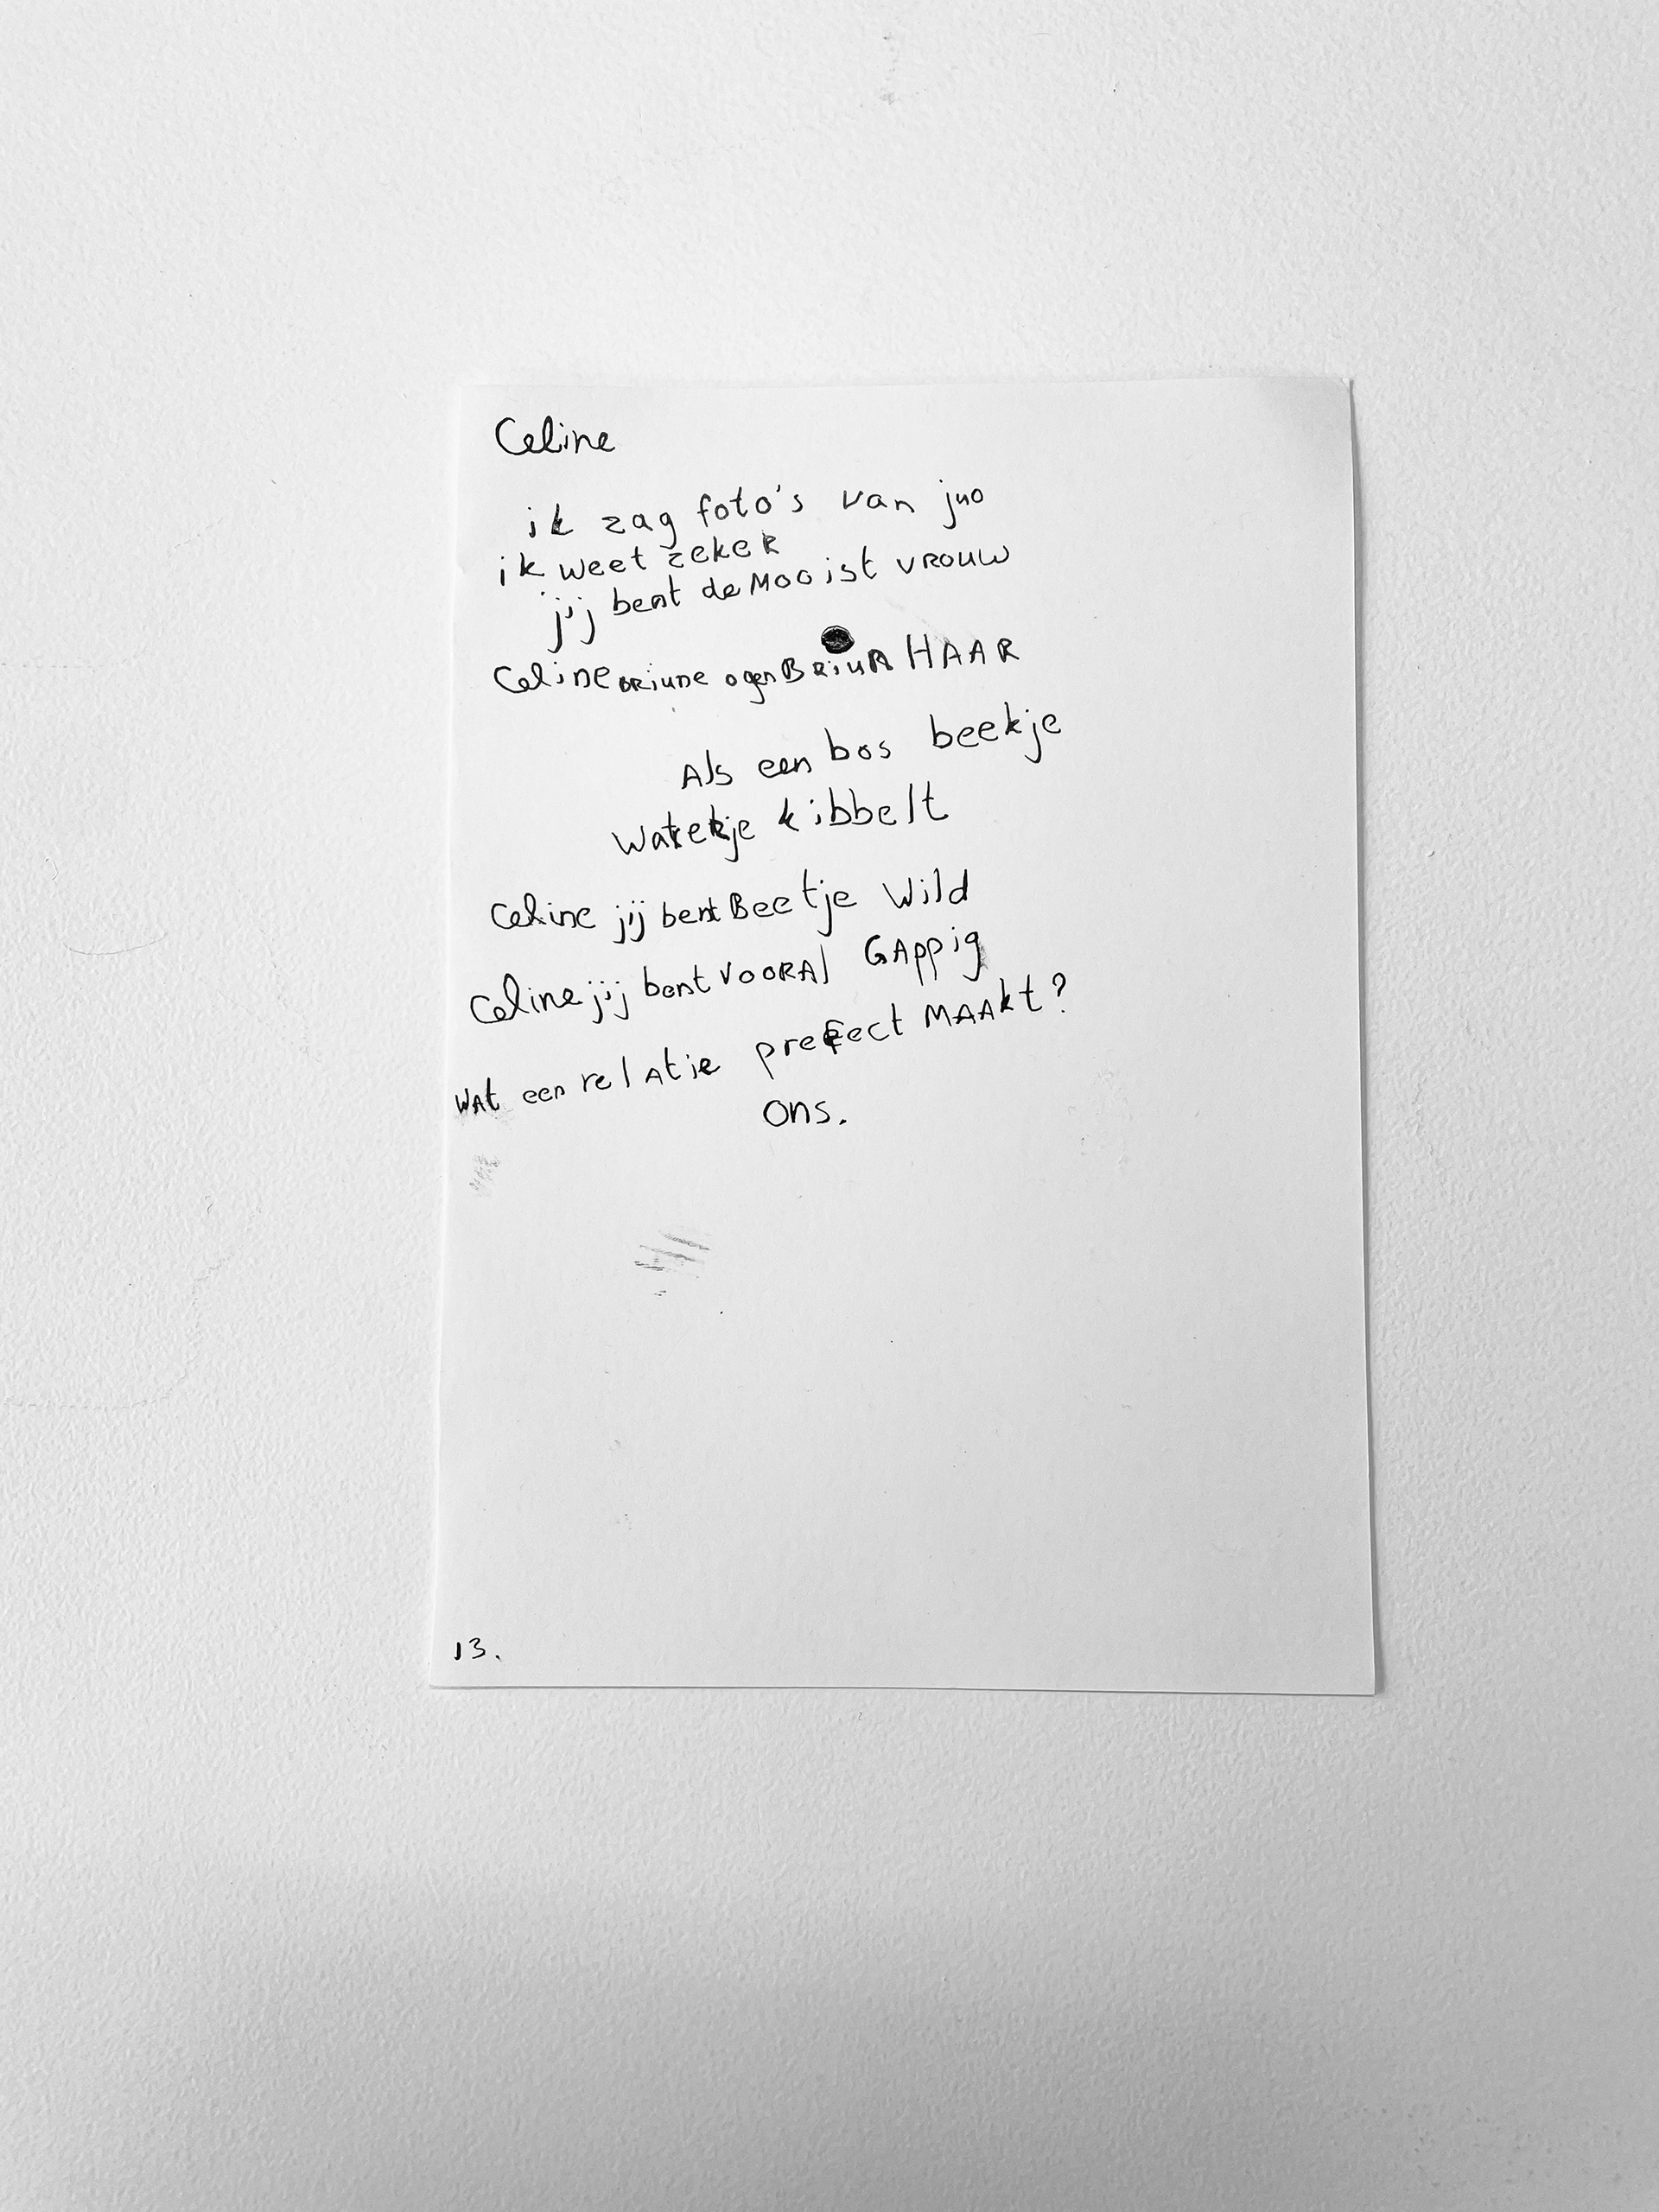 Celine
ik zag foto's van juo
ik weet zeker
jij bent de Mooist vrouw
Celine Briune ogen Briun HAAR
Als een bos beekje
Waterje kibbelt
Celine jij bent Beetje Wild
Celine jij bent VOORAl GAppig
WAt een relAtie prefect MAAkt?
Ons.
13.